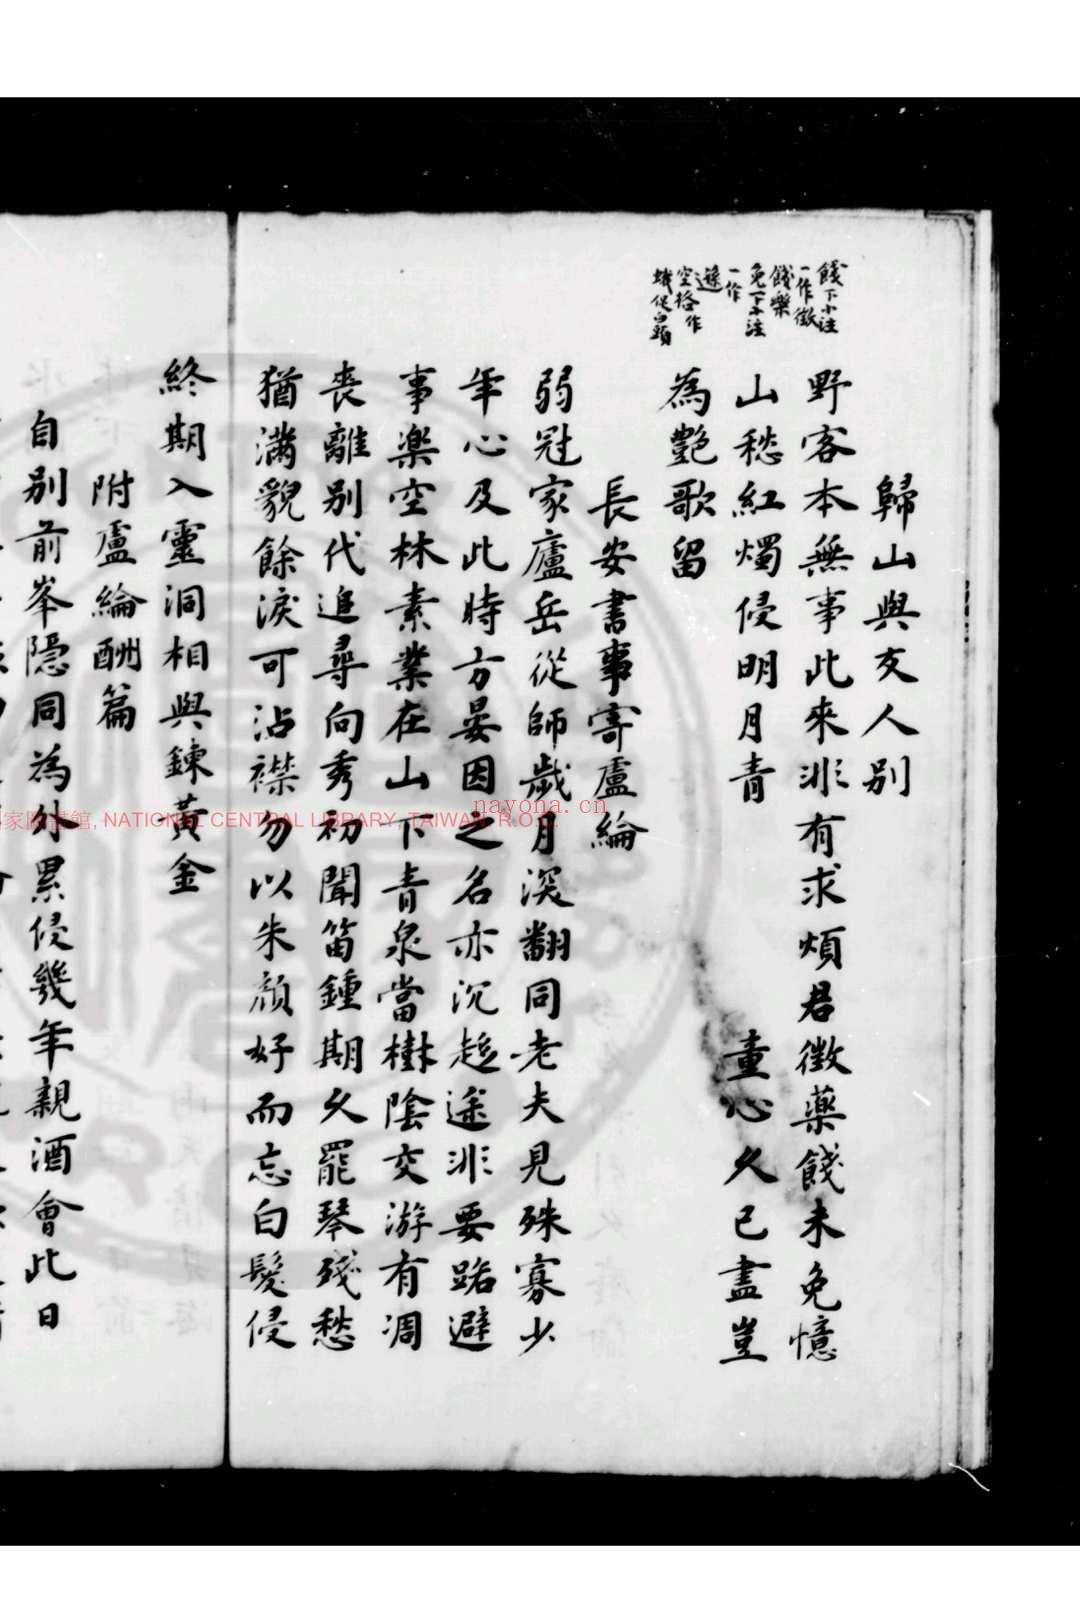 餞下小注
一作徵
餞樂
免下小注
一作
遂
空格作
蛾促白頭
歸山與友人别
野客本無事此來非有求煩君徵藥餞未免憶
山愁紅燭侵明月青　　　　童心久已盡豈
為艷歌留
長安書事寄盧綸
弱冠家廬岳從師歲月深翻同老夫見殊寡少
年心及此時方晏因之名亦沉趍途非要路避
事樂空林素業在山下青泉當樹陰交游有凋
喪離别代追尋向秀初聞笛鍾期久罷琴殘愁
猶滿貌餘淚可沾襟勿以朱顔好而忘白髮侵
終期入靈洞相與鍊黄金
附盧綸酬篇
自别前峯隱同為外累侵幾年親酒會此日
國家圖書館, NATIONAL CENTRAL LIBRARY, TAIWAN R.O.C.
nayona.cn